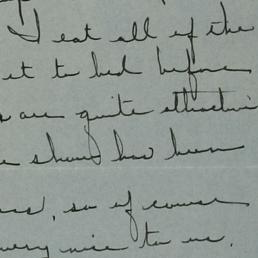 I eat all of the
et to bed before
are quite attractiv
show has been
so of course
very nice to us.